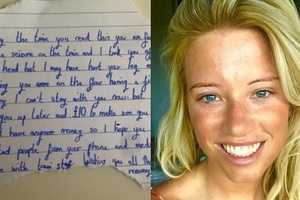 the time you read this you are
a seizure on the train and I
head but I may have hurt
you were on the floor having a
I can't stay with you now but
you up later and £10 to make sure you
have anymore money so I hope you
people from your phone and
with train staff wishing you all the
recovery